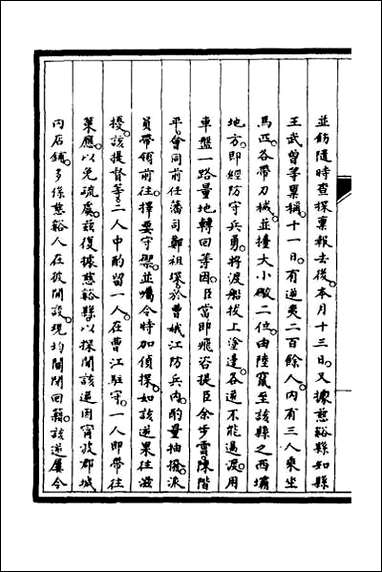 並飭隨時查探稟報去後。本月十三日。又據慈谿縣知縣
王武曾等稟稱。十一日。有逆夷二百餘人。內有三人乘坐
馬匹。各帶刀械。並擡大小礮二位。由陸竄至該縣之西壩
地方。即經防守兵勇。將渡船拔上塗邊。各逆不能過渡。用
車盤一路量地轉回等因。臣當即飛咨提臣余步雲。陳階
平。會同前任藩司鄭祖琛。於曹娥江防兵內。酌量抽撥。派
員帶領前往。擇要守禦。並囑令時加偵探。如該逆果往滋
擾。該提督等二人中酌留一人。在曹江駐守。一人即帶往
策應。以免疏虞。茲復據慈谿縣。以探聞該逆因甯波郡城
內店鋪。多係慈谿人在彼開設。現均關閉回籍。該逆屢令